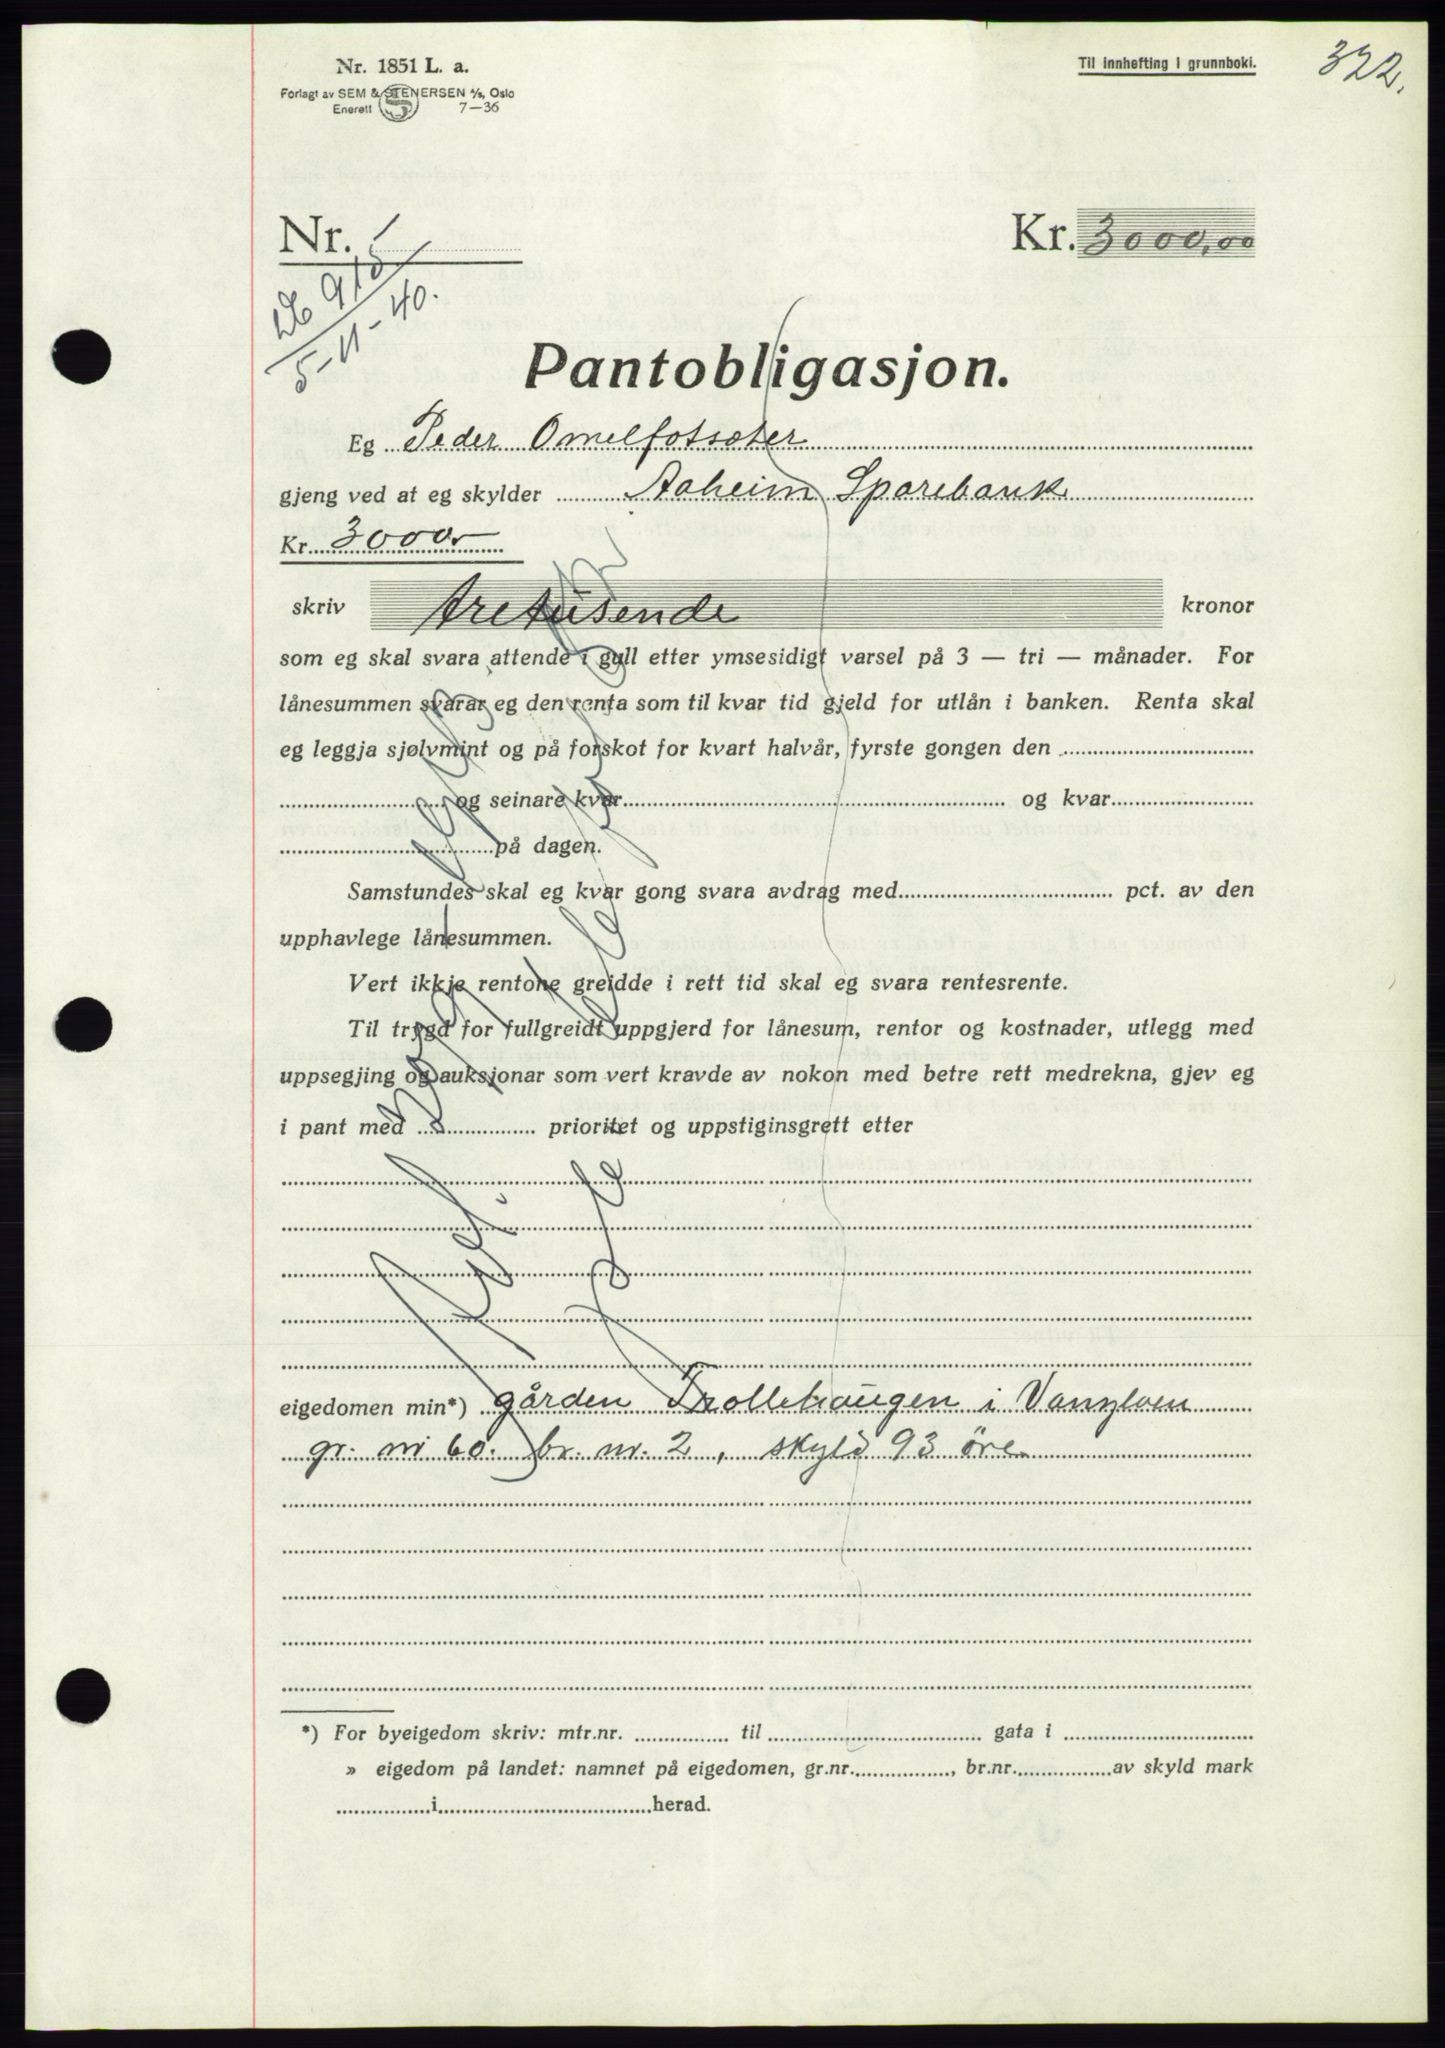 Nr. 1851 L. a.
Forlagt av SEM & STENERSEN A/S, Oslo
Enerett 7—36
Til innhefting i grunnboki.
322.
Nr.
Kr. 3000,00
915
5-11-40.
Pantobligasjon.
Eg Peder Omelfotsæter
gjeng ved at eg skylder Aaheim Sparebank
Kr. 3000,-
skriv tretusende kronor
som eg skal svara attende i gull etter ymsesidigt varsel på 3 — tri — månader. For
lånesummen svarar eg den renta som til kvar tid gjeld for utlån i banken. Renta skal
eg leggja sjølvmint og på forskot for kvart halvår, fyrste gongen den
og seinare kvar og kvar
på dagen.
Samstundes skal eg kvar gong svara avdrag med pct. av den
upphavlege lånesummen.
Vert ikkje rentone greidde i rett tid skal eg svara rentesrente.
Til trygd for fullgreidt uppgjerd for lånesum, rentor og kostnader, utlegg med
uppsegjing og auksjonar som vert kravde av nokon med betre rett medrekna, gjev eg
i pant med prioritet og uppstiginsgrett etter
eigedomen min*) gården Trollehaugen i Vanylven
gr. nr 60. br. nr. 2, skyld 93 öre
*) For byeigedom skriv: mtr.nr. til gata i
» eigedom på landet: namnet på eigedomen, gr.nr. , br.nr. av skyld mark
i herad.